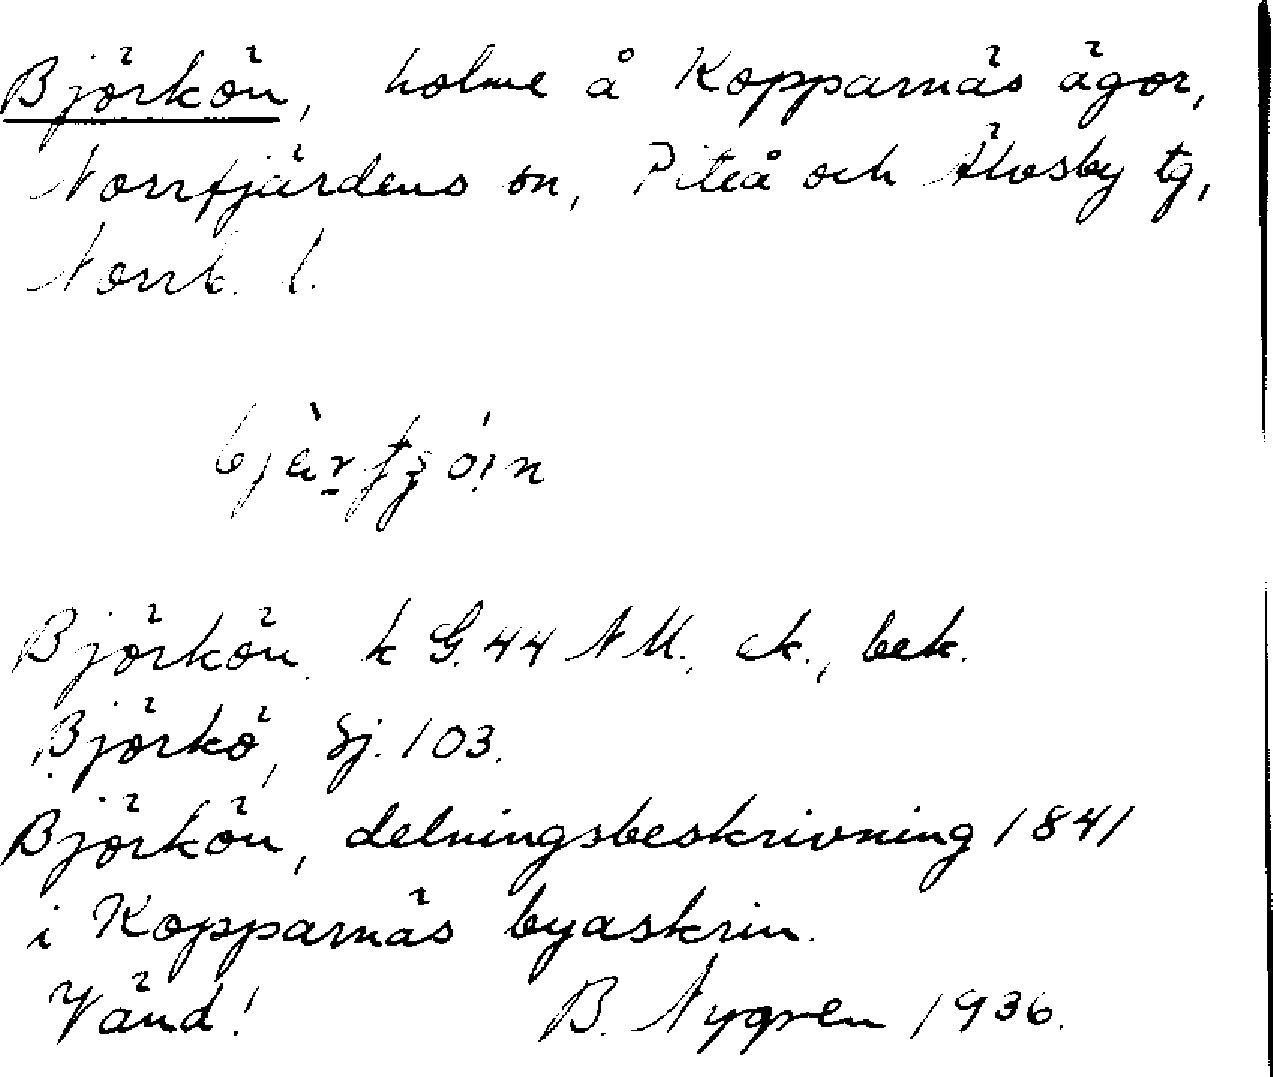 Björkön, holme å Kopparnäs ägor,
Norrfjärdens sn, Piteå och Älvsby tg,
Norrb. l.
Björkön k G.44 NM., ek., bek.
Björkö, Sj. 103.
Björkön, delningsbeskrivning 1841
i Kopparnäs byaskrin.
Vänd! B. Nygren 1936.